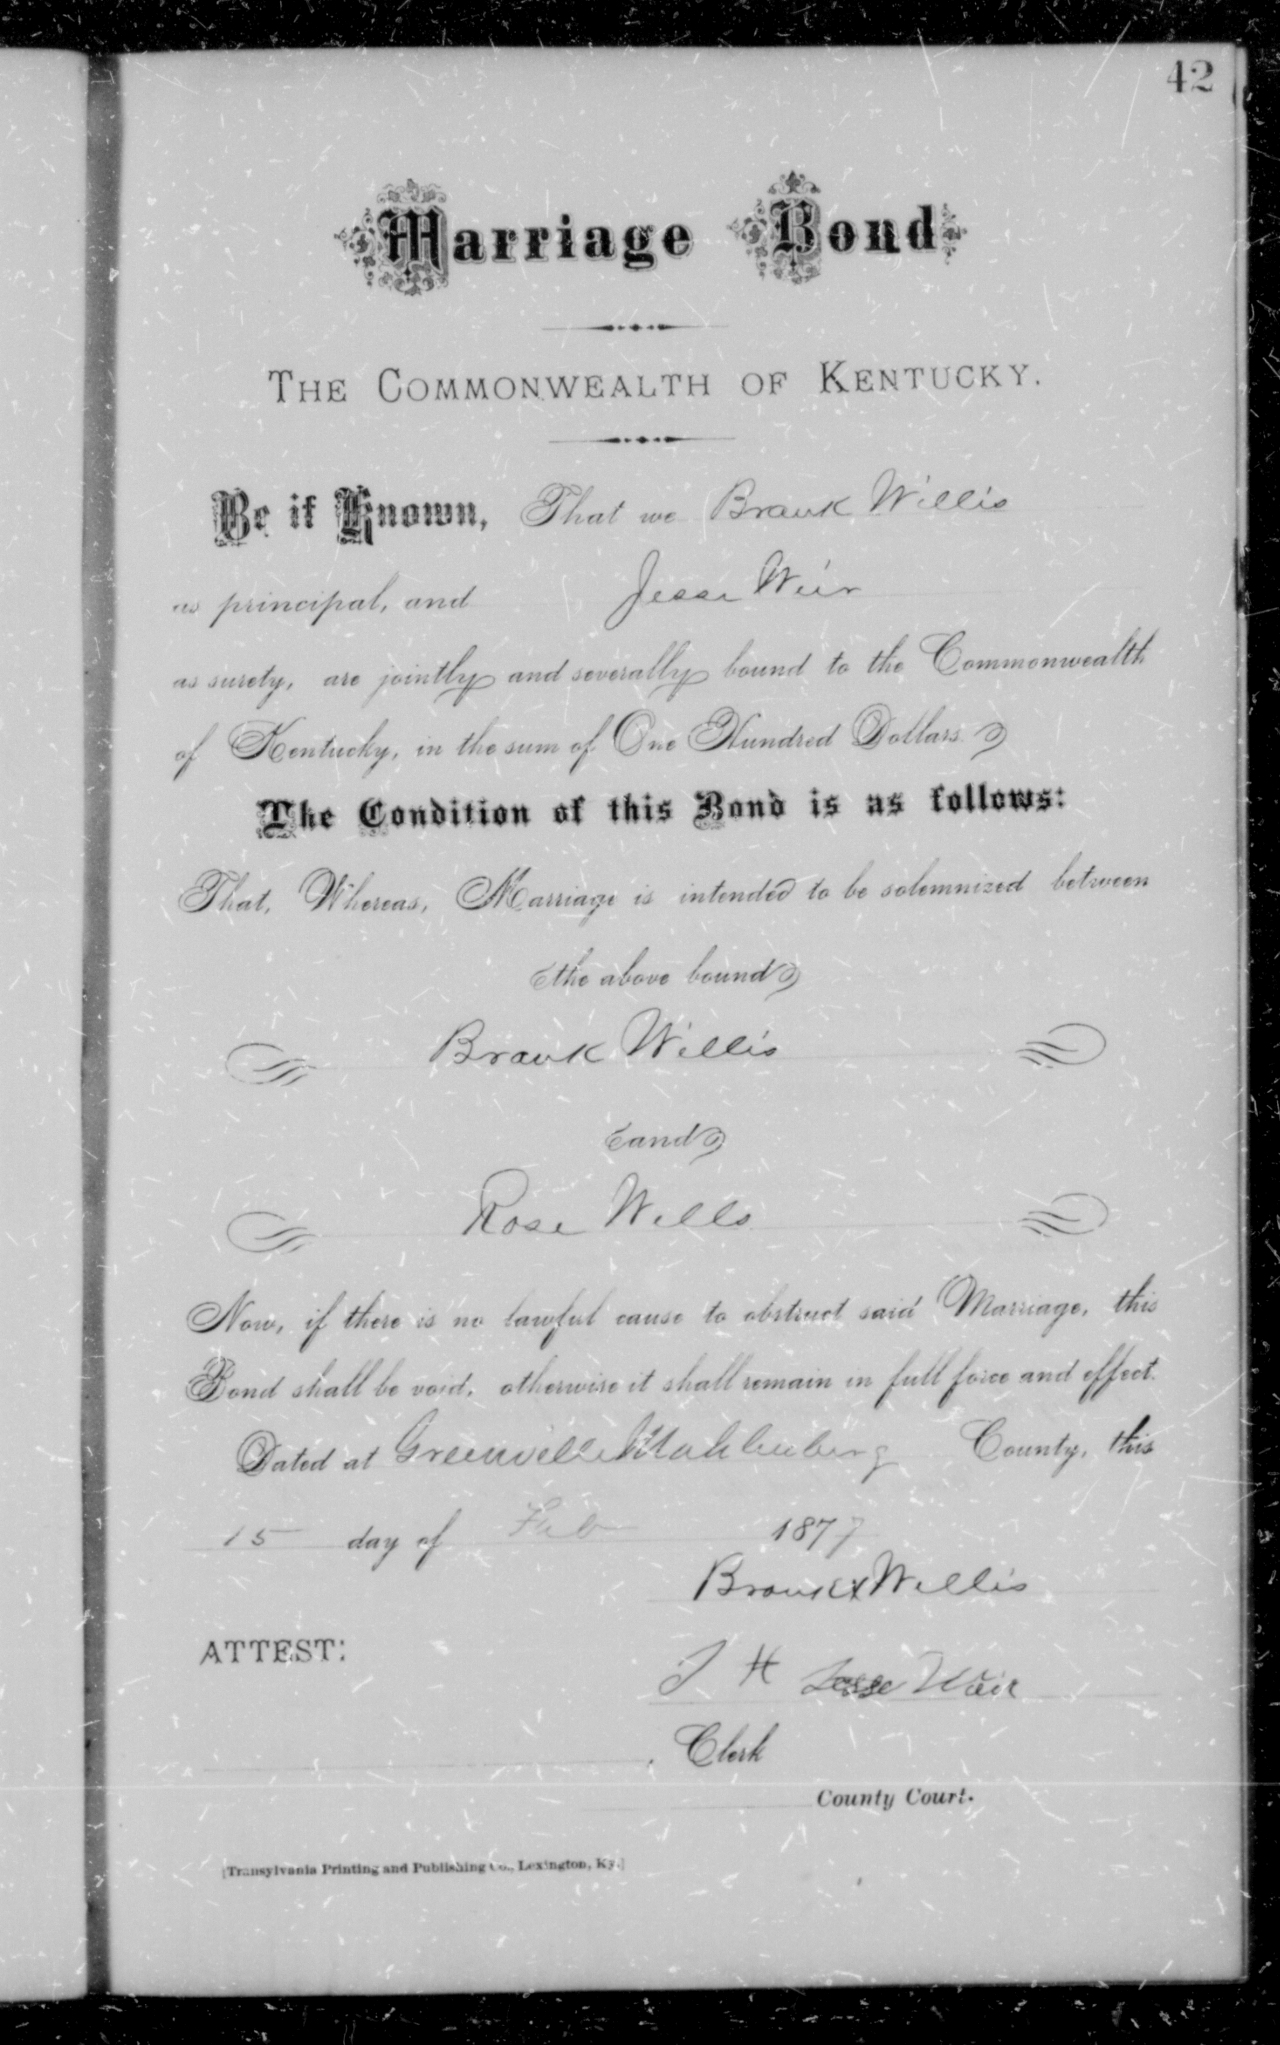 42
Marriage Bond
THE COMMONWEALTH OF KENTUCKY.
Be it Known, That we Brank Willis
as principal, and Jesse Weir
as surety, are jointly and severally bound to the Commonwealth
of Kentucky, in the sum of One Hundred Dollars.
The Condition of this Bond is as follows:
That, Whereas, Marriage is intended to be solemnized between
the above bound
Brank Willis
and
Rose Wells
Now, if there is no lawful cause to obstruct said Marriage, this
Bond shall be void, otherwise it shall remain in full force and effect.
Dated at Greenville Muhlenberg County, this
15 day of Feb 1877
Brank x Willis
ATTEST:
J H Jesse Weir
, Clerk
County Court.
[Transylvania Printing and Publishing Co., Lexington, Ky.]